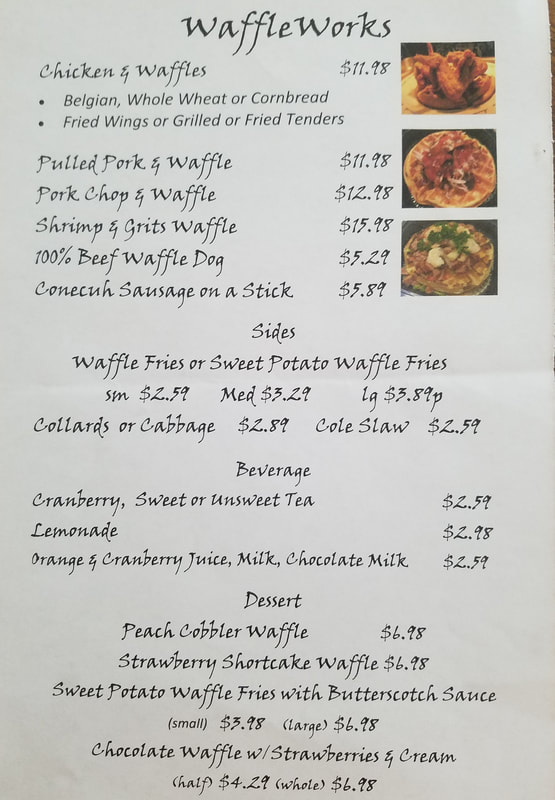 WaffleWorks
Chicken & Waffles $11.98
• Belgian, Whole Wheat or Cornbread
• Fried Wings or Grilled or Fried Tenders
Pulled Pork & Waffle $11.98
Pork Chop & Waffle $12.98
Shrimp & Grits Waffle $15.98
100% Beef Waffle Dog $5.29
Conecuh Sausage on a Stick $5.89
Sides
Waffle Fries or Sweet Potato Waffle Fries
sm $2.59 Med $3.29 lg $3.89p
Collards or Cabbage $2.89 Cole Slaw $2.59
Beverage
Cranberry, Sweet or Unsweet Tea $2.59
Lemonade $2.98
Orange & Cranberry Juice, Milk, Chocolate Milk $2.59
Dessert
Peach Cobbler Waffle $6.98
Strawberry Shortcake Waffle $6.98
Sweet Potato Waffle Fries with Butterscotch Sauce
(small) $3.98 (large) $6.98
Chocolate Waffle w/Strawberries & Cream
(half) $4.29 (whole) $6.98